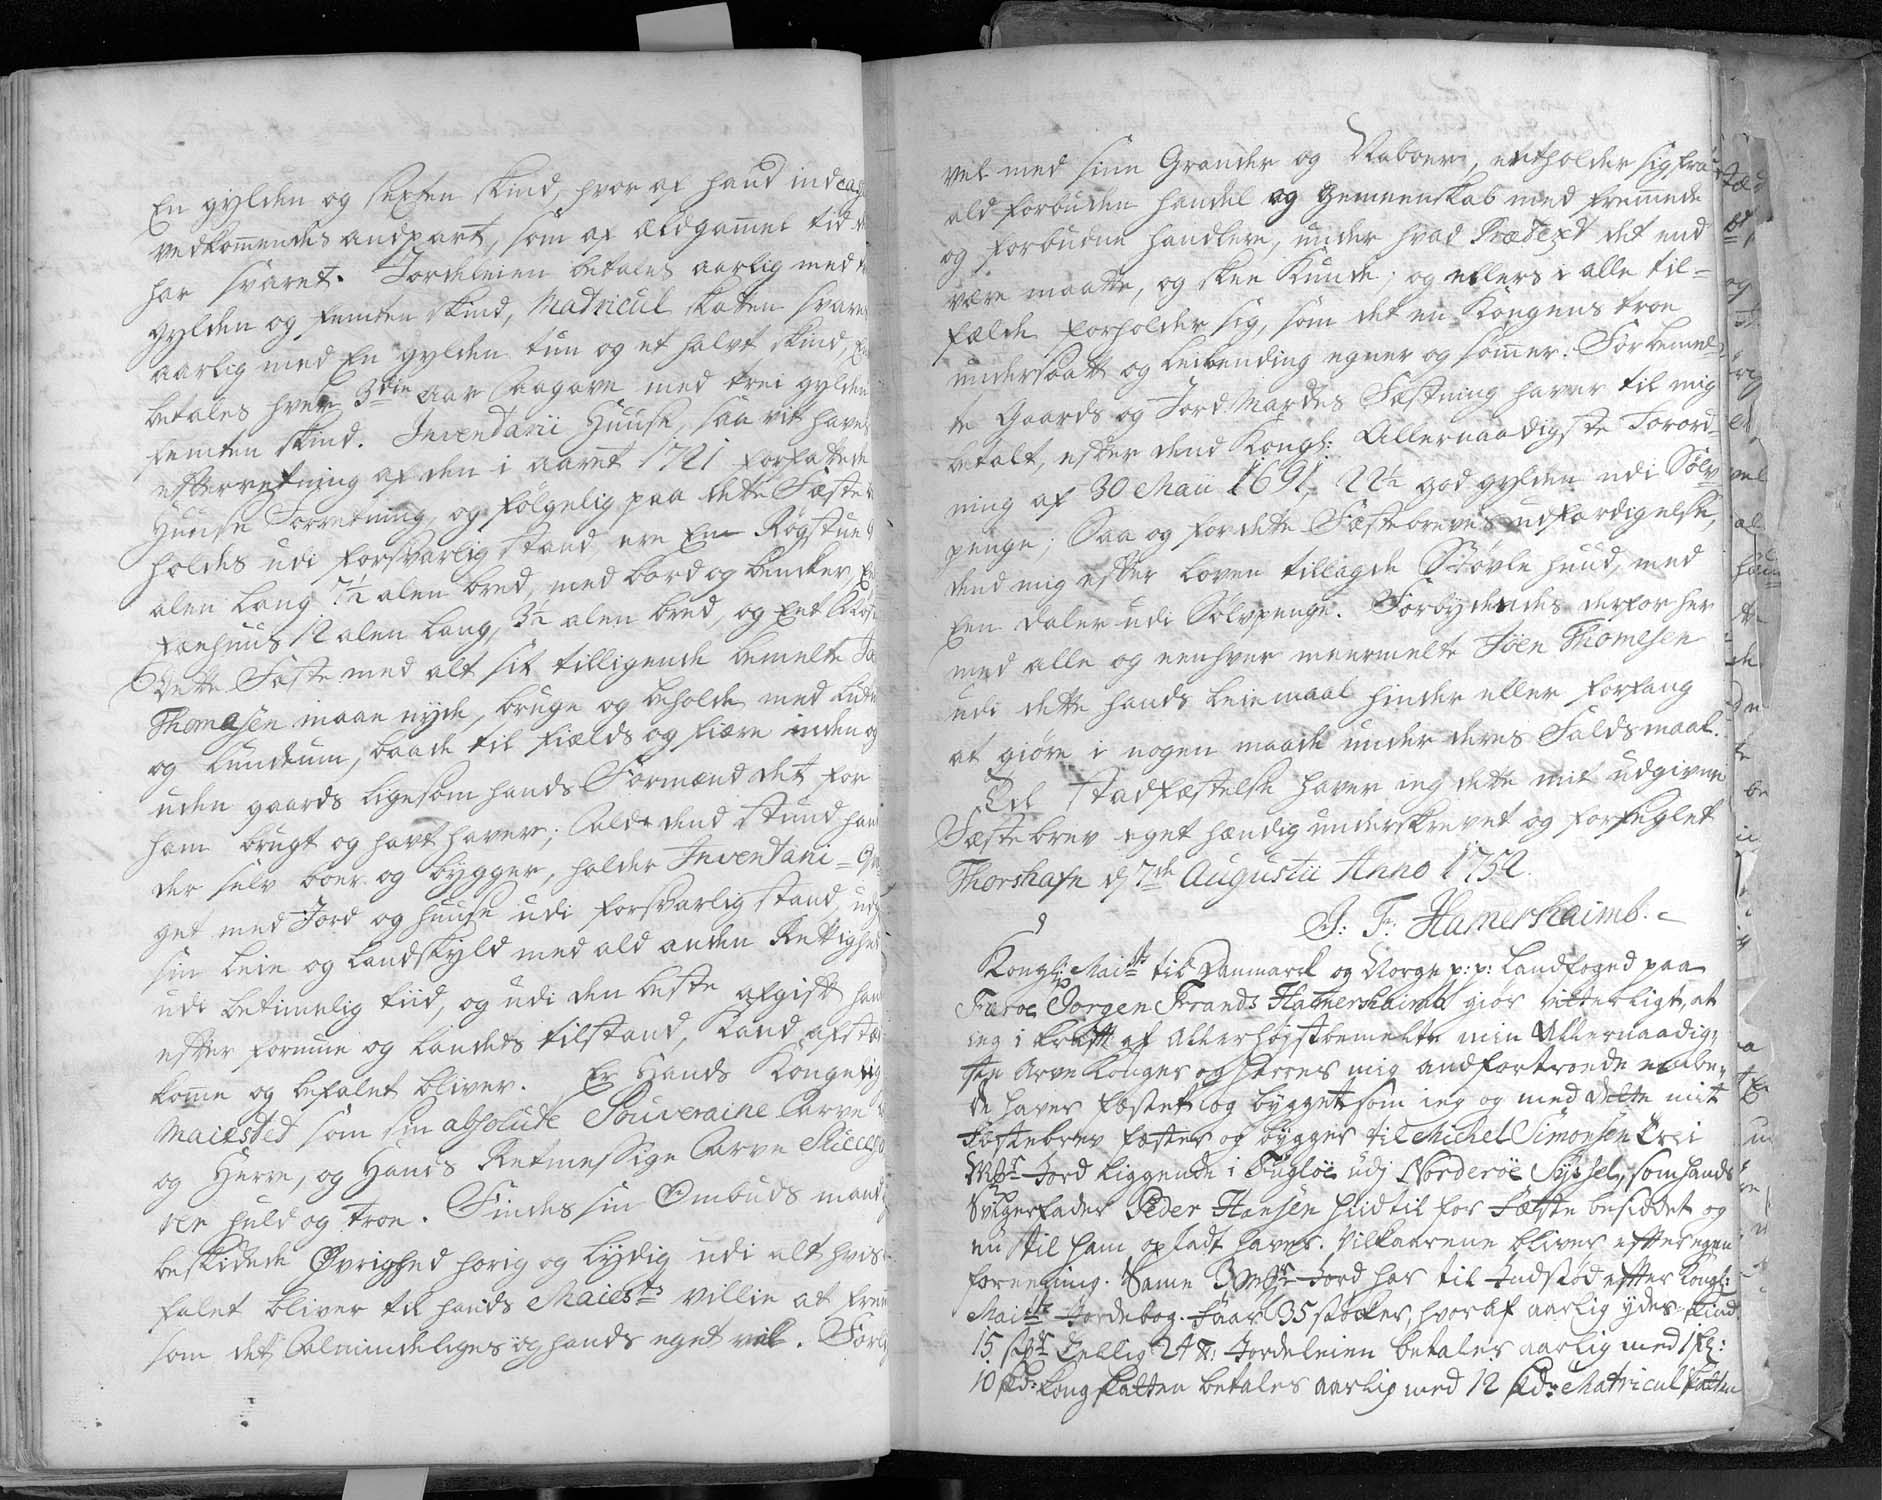 En gylden og sexten skind, hvor af haud indtag
vedkommendes andpart, som af ældgammel tid
har svaret. Jordeleien betales aarlig med
gylden og femten skind, Matricul skatten svares
aarlig med En gylden tun og et halvt skind,
betales hver 3die aar Saagave med trei gylden
femten skind. Inventarii Huuse, saa vit haves
efterretning af den i aaret 1721 forfattede
Huuse Forretning, og følgelig paa dette Fæste
holdes udi forsvarlig stand ere En Røgstue
alen lang 7½ alen bred, med bord og bencker,
faehuus 12 alen lang, 3½ alen bred, og Ent
Dette Fæste med alt sit tilligende bemelte Jo
Thomesen maae nyde, bruge og beholde med
og Lunckum, baade til fields og fiære inden og
uden gaards ligesom hands Formænd det for
ham brugt og havt haver; Alde dend stund hand
der selv boer og bygger, holder Inventari-
get med Jord og huuse udi forsvarlig stand, udg
sin leie og Landskyld med ald anden Rettighed
udi betimelig tiid, og udi den beste afgift hand
efter formue og Landets tilstand, kand afsted
komme og befalet bliver. Er Hands Kongelig
Maiested som sin absolute Souveraine Arve
og Herre, og Hands Retmessige Arve Succes
ver huld og troe. Findes sin Ombuds mand
beskickede Øvrighed hørig og lydig udi alt hvis
falet bliver til hands Maiests villie at frem
som det Almindeliges og hands eget vel. Forlig
vel med sine Grander og Naboer, entholder sig fra
ald forbuden handel og Gemeenskab med fremmede
og forbudne handlere, under hvad Prætext det end
være maatte, og skee kunde; og ellers i alle til=
fælde forholder sig, som det en Kongens troe
undersaatt og Leilending egner og sømmer. For bemel=
te Gaards og Jord Marckes Fæstning haver til mig
betalt, efter dend Kongl: Allernaadigste Forord=
ning af 30 Maii 1691. 22½ god gylden udi Sølv
penge; Saa og for dette Fæstebreves udfærdigelse,
dend mig efter loven tillagde Støvle huud, med
Een daler udi Sølvpenge. Forbydendes derfor her
med alle og eenhver meermelte Joen Thomesen
udi dette hands leiemaal hinder eller forfang
at giøre i nogen maade under deres Faldsmaal.
Til Stadfæstelse haver ieg dette mit udgivne
Fæstebrev eget hændig underskrevet og forseglet
Thorshafn d 7de Augustii Anno 1752.
J: F: Hamershaimb.
Kongl: Maits til Danmarck og Norge p: p: Landfoged paa
Færoe Jorgen Frands Hammershaimb giør vitterligt, at
ieg i kraft af Allerhøjstbemelte min Allernaadig=
ste Arve Konges og Herres mig andfortroede embe=
de haver fæstet og bygget som ieg og med dette mit
Fæstebrev fæster og bygger til Michel Simonsen trei
Mkr Jord liggende i Fugloe udj Norderøe Syssel, som hands
Svigerfader Peder Hansen hidtil for Fæste besiddet og
nu til ham opladt haver. Vilkaarene bliver efter egen
foreening. Same 3 Mkr Jord har til Indstød efter Kongl:
Maits Jordebog. Faar 35 støcker, hvoraf aarlig ydes skind
15 Tællig 24 Jordeleien betales aarlig med 1 gl:
10 skd: kongskatten betales aarlig med 12 skd: Matricul skatten